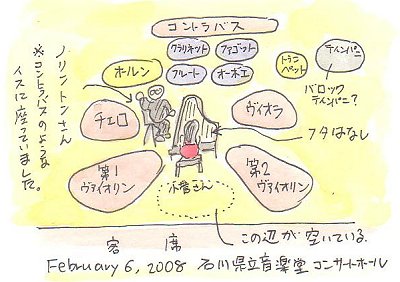 コントラバス
クラリネット
ファゴット
ティンパニ
ホルン
フルート
オーボエ
トラン
ペット
バロック
ティンパニ?
ノリントンさん
※コントラバスのような
イスに座っていました。
チェロ
ヴィオラ
フタはなし
第1
ヴァイオリン
小菅さん
第2
ヴァイオリン
客席
この辺が空いている
February 6, 2008 石川県立音楽堂 コンサートホール